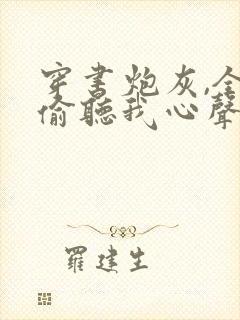 穿书炮灰,全
偷聽我心聲
羅建生